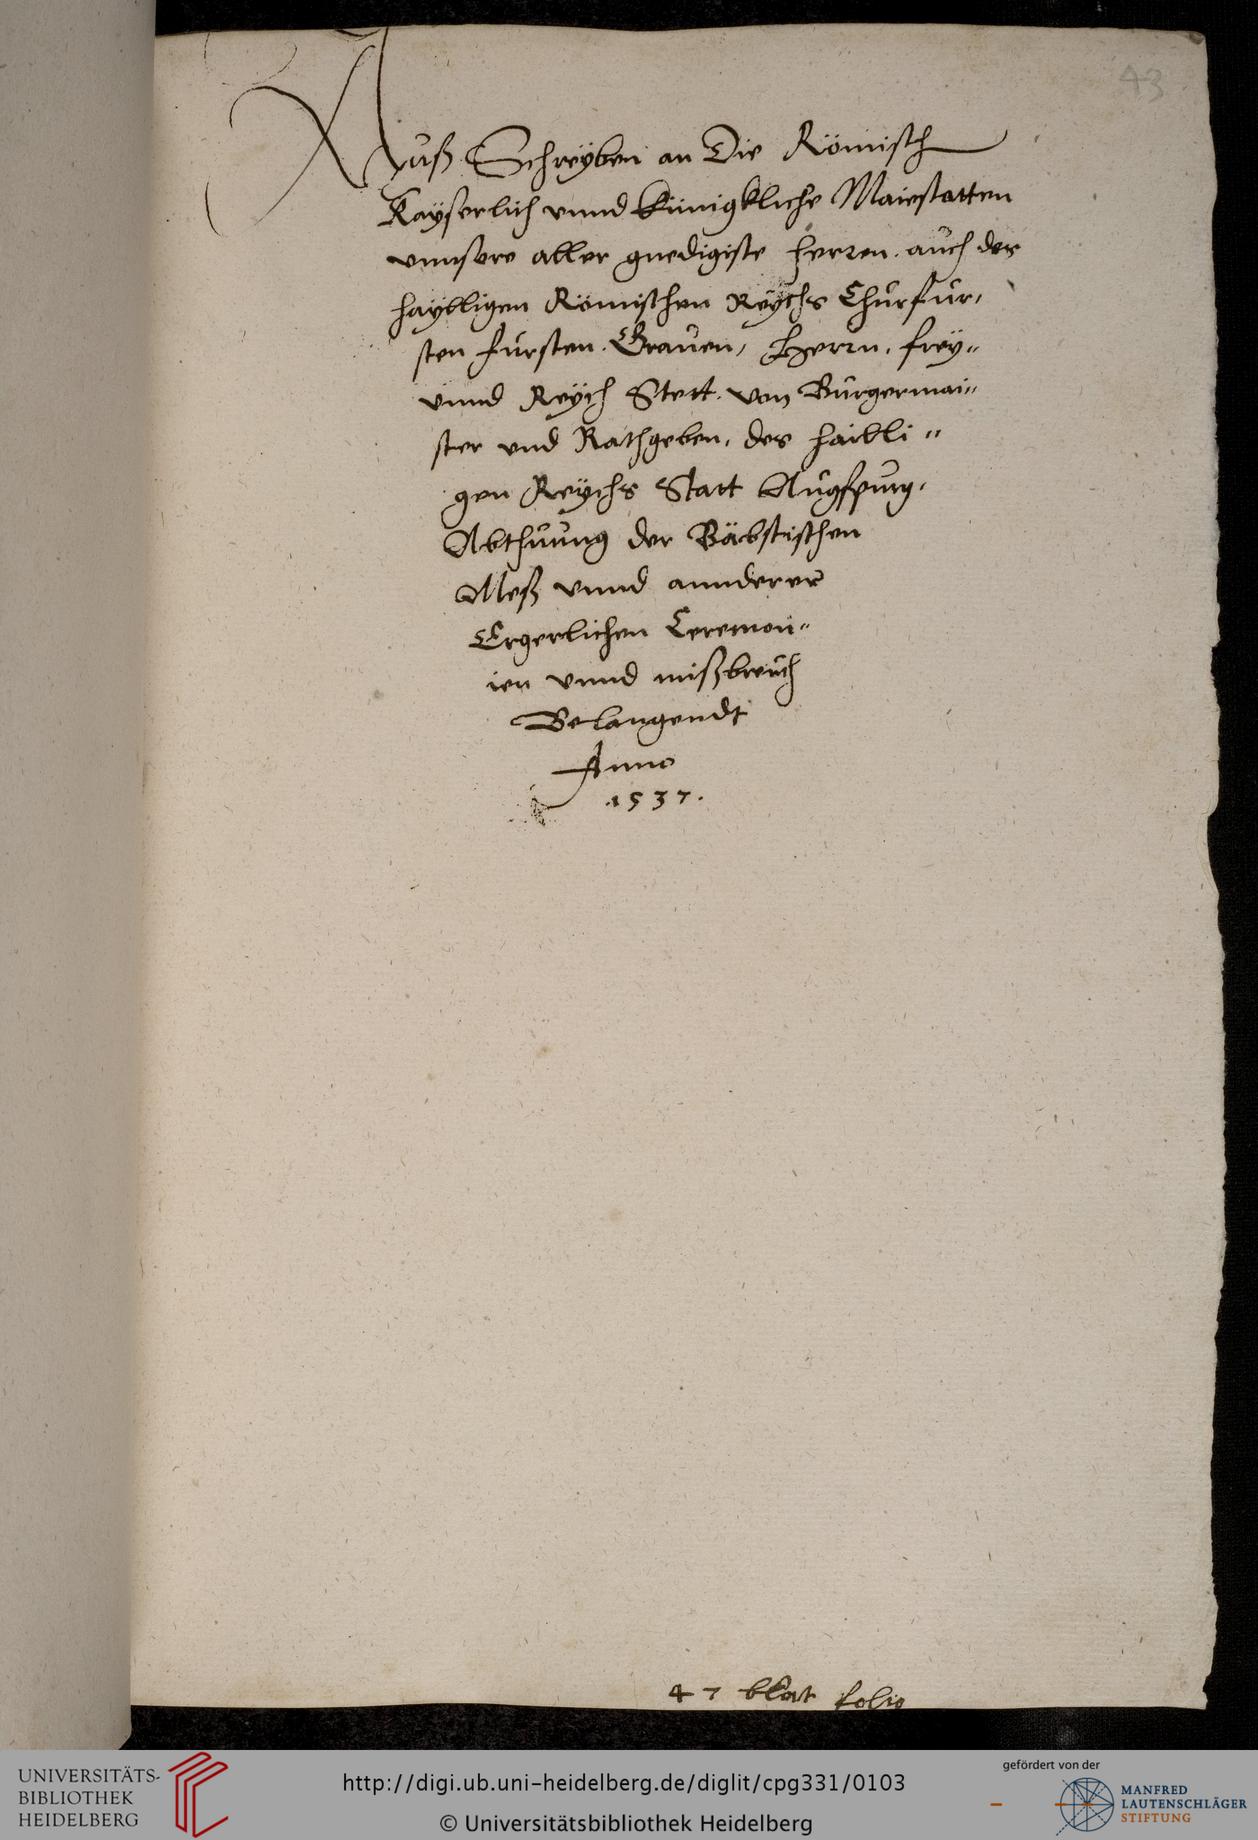 43
Auß Schreyben an Die Römisch
Kayserlich vnnd künigkliche Maiestatten
vnnsere aller gnedigiste herren. auch des
haylligen Römischen Reychs Churfur,
sten fursten. Grauen, Herrn, freÿ„
vnnd Reych Stett. von Burgermai„
ster vnd Rathgeben, des hailli„
gen Reÿchs Statt Augspurg,
Abthuung der Bäbstischen
Meß vnnd annderer
Ergerlichen Ceremon„
ien vnnd mißbreuch
Belangendt
Anno
.1537.
47 blat folio
UNIVERSITÄTS-
BIBLIOTHEK
HEIDELBERG
http://digi.ub.uni-heidelberg.de/diglit/cpg331/0103
© Universitätsbibliothek Heidelberg
gefördert von der
MANFRED
LAUTENSCHLÄGER
STIFTUNG